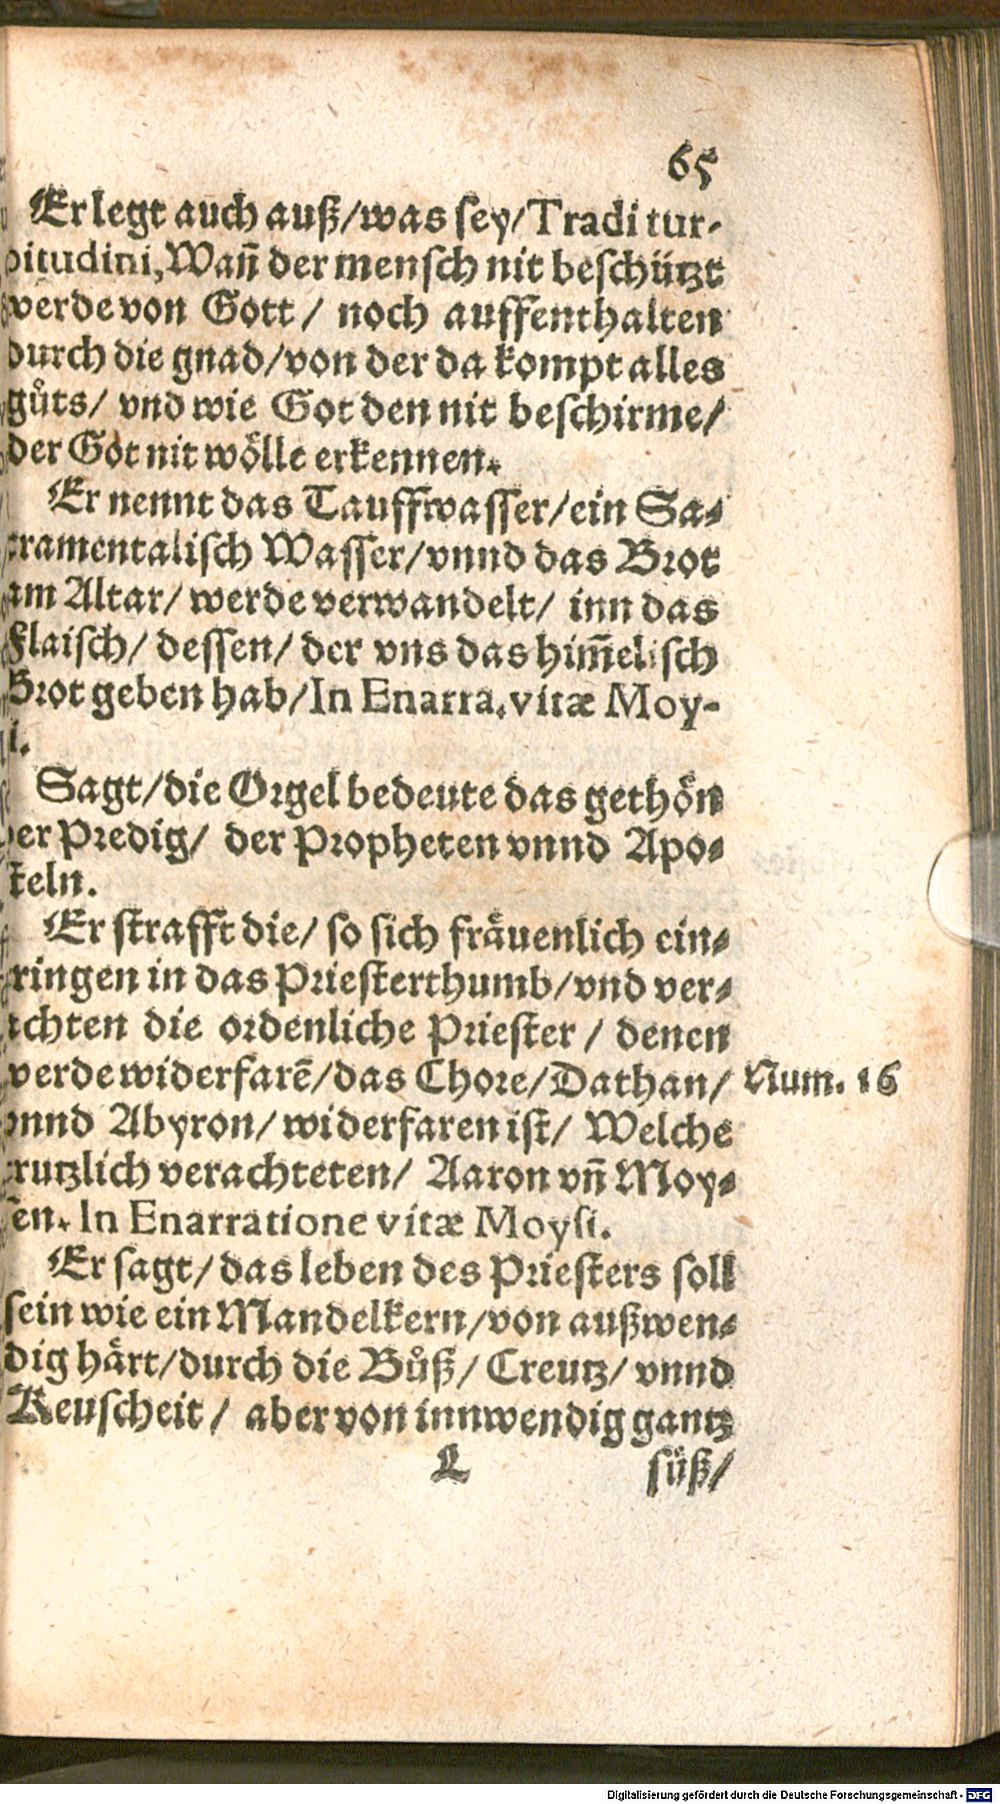 65
Er legt auch auß/was sey/Tradi tur-
pitudini, Wañ der mensch nit beschützt
werde von Gott/ noch auffenthalten
durch die gnad/von der da kompt alles
gůts/ vnd wie Got den nit beschirme/
der Got nit wölle erkennen.
Er nennt das Tauffwasser/ein Sa-
cramentalisch Wasser/vnnd das Brot
am Altar/ werde verwandelt/ inn das
Flaisch/ dessen/ der vns das him̃elisch
Brot geben hab/In Enarra. vitæ Moy-
si.
Sagt/die Orgel bedeute das gethön
der Predig/ der Propheten vnnd Apo-
steln.
Er strafft die/ so sich fräuenlich ein-
tringen in das Priesterthumb/vnd ver-
achten die ordenliche Priester/ denen
werde widerfarẽ/das Chore/Dathan/ Num. 16
vnnd Abyron/widerfaren ist/ Welche
trutzlich verachteten/ Aaron vñ Moy-
sen. In Enarratione vitæ Moysi.
Er sagt/das leben des Priesters soll
sein wie ein Mandelkern/von außwen-
dig härt/durch die Bůß/ Creutz/ vnnd
Keuscheit/ aber von innwendig gantz
L süß/
Digitalisierung gefördert durch die Deutsche Forschungsgemeinschaft - DFG